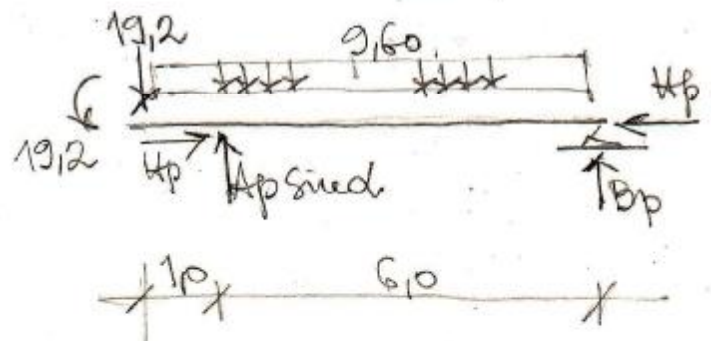 19,2
9,60
Hp
19,2
Hp
Ap
Bp
1,0
6,0